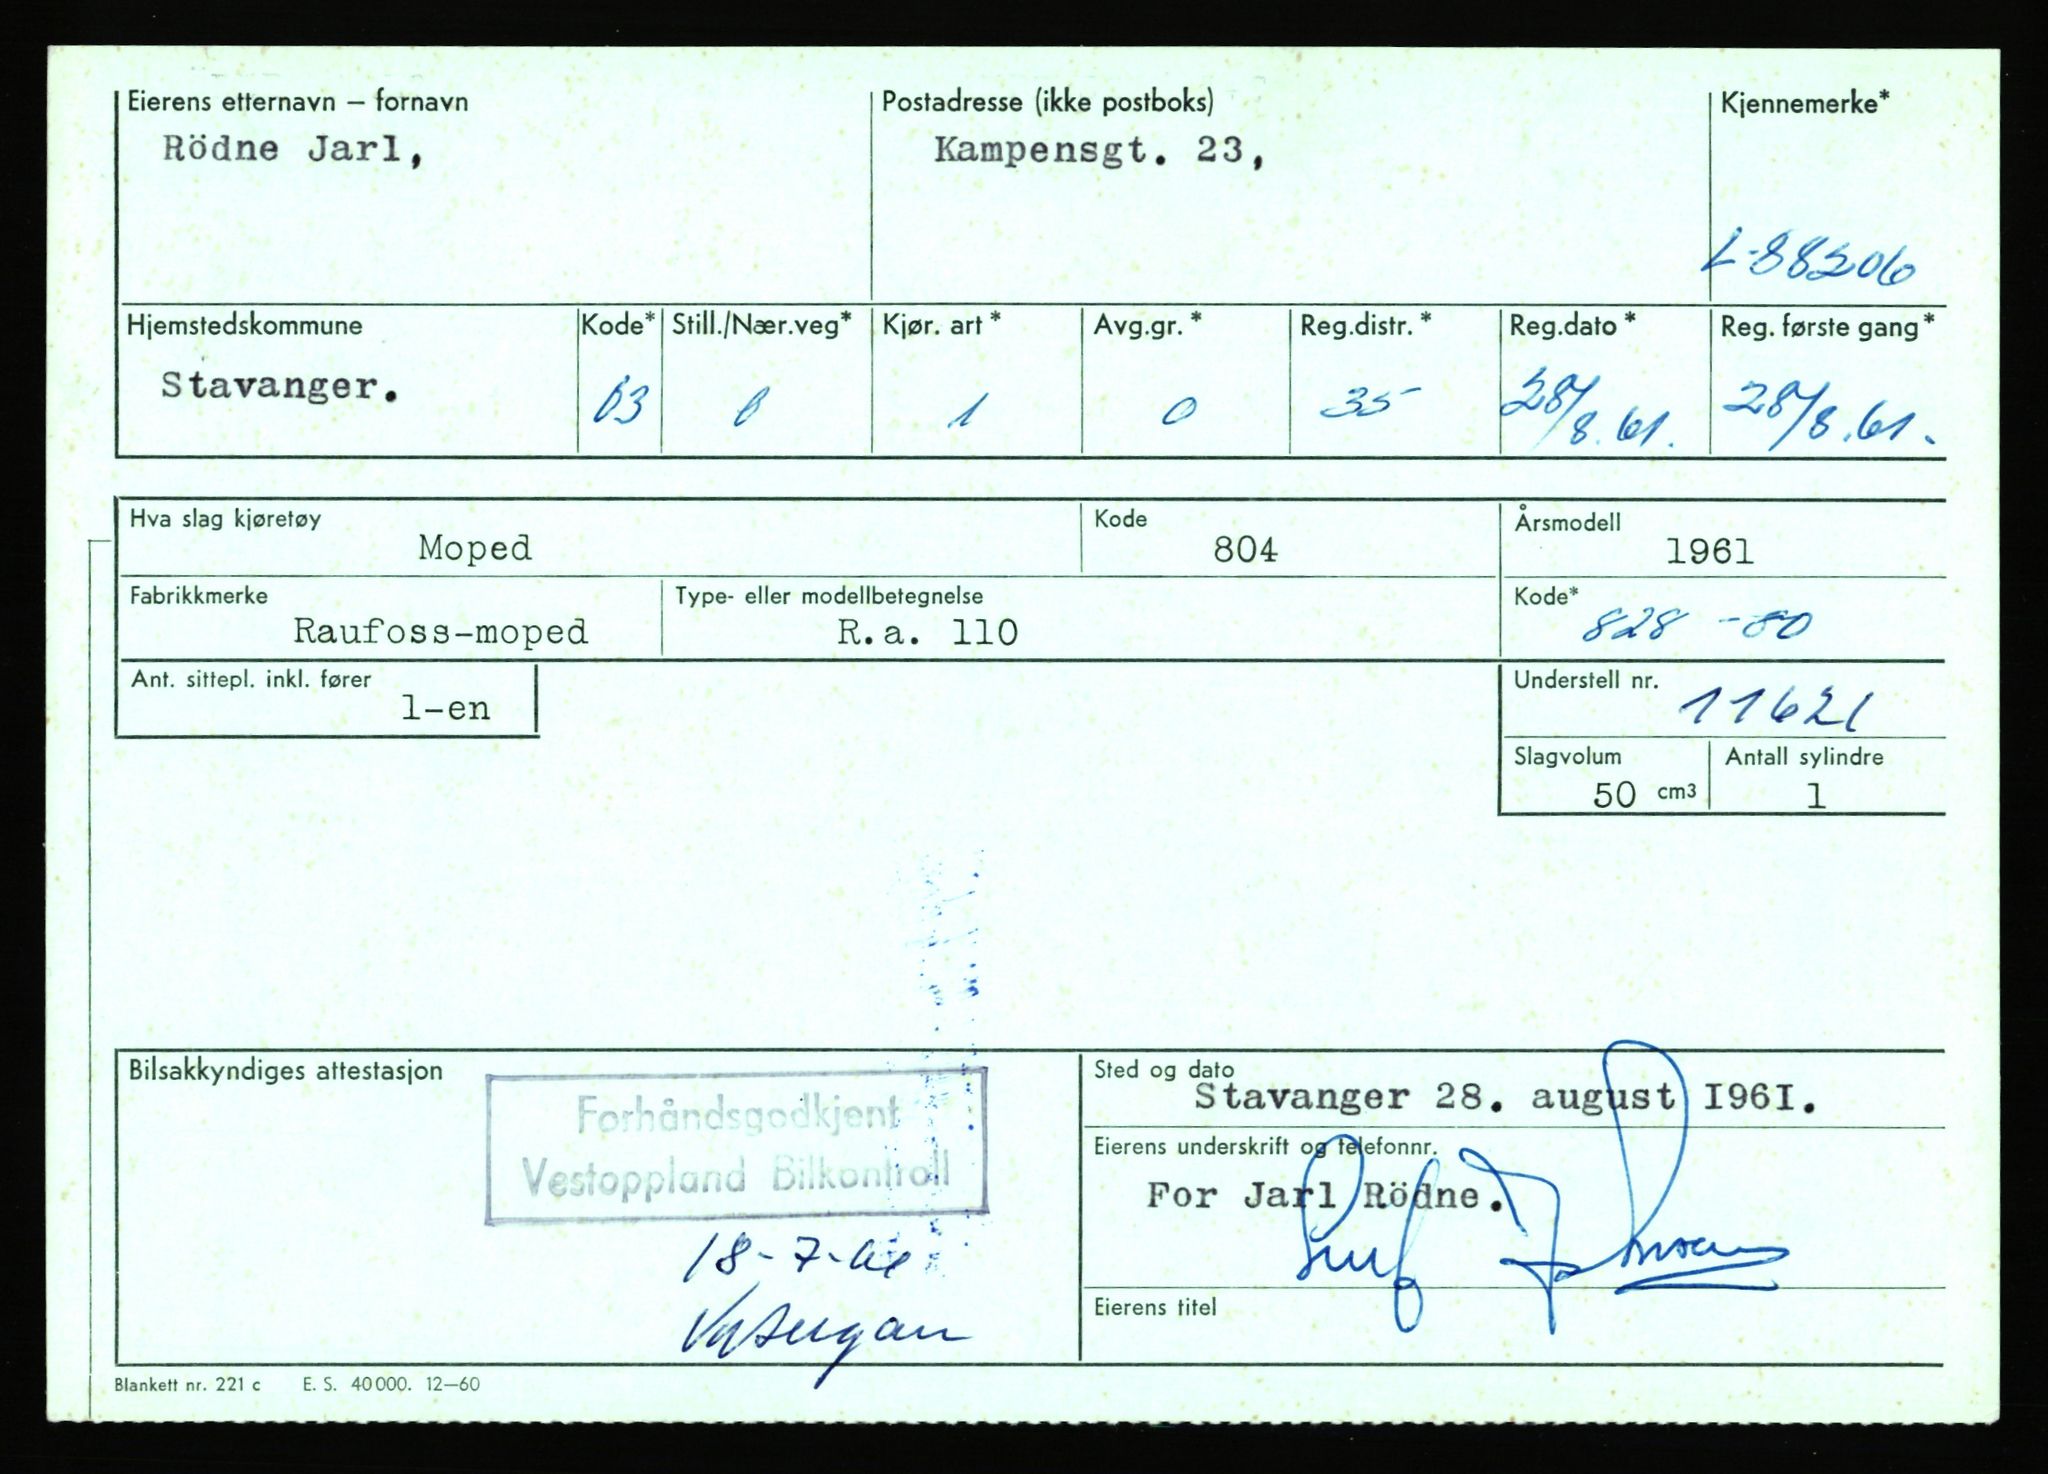 Eierens etternavn – fornavn
Rödne Jarl,
Postadresse (ikke postboks)
Kampensgt. 23,
Kjennemerke*
L-88206
Hjemstedskommune
Stavanger.
Kode*
03
Still./Nær.veg*
0
Kjør. art *
1
Avg.gr. *
0
Reg.distr. *
35
Reg.dato *
28/8.61.
Reg. første gang *
28/8.61.
Hva slag kjøretøy
Moped
Kode
804
Årsmodell
1961
Fabrikkmerke
Raufoss-moped
Type- eller modellbetegnelse
R.a. 110
Kode*
828 -80
Ant. sittepl. inkl. fører
1-en
Understell nr.
11621
Slagvolum
50 cm3
Antall sylindre
1
Bilsakkyndiges attestasjon
Forhåndsgodkjent
Vestoppland Bilkontroll
18-7-61
Sted og dato
Stavanger 28. august I96I.
Eierens underskrift og telefonnr.
For Jarl Rödne.
Eierens titel
Blankett nr. 221 c E. S. 40 000. 12–60